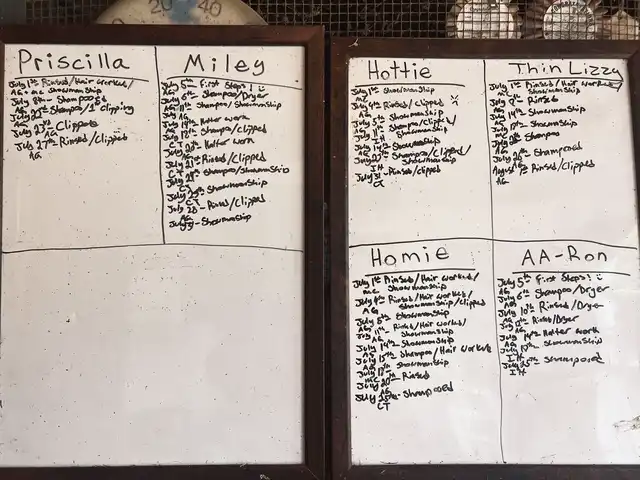 20 40
Priscilla
July 1st Rinsed/Hair worked/
AG+mc showmanship
July 8th- Shampooed
July 22th- Shampoo/1st Clipping
AG
July 23th Clipped
AG
July 27th- Rinsed/Clipped
AG
Miley
July 5 - First Steps! :)
July 6th- Shampoo/Dryer
AG
July 11th- Shampoo/Showmanship
AG
July 14th Halter work
AG
July 17th Shampoo/Clipped
CT
July 20th Halter work
AG
July 21st Rinsed/Clipped
CT
July 21st Shampoo/Showmanship
CT
July 25th Showmanship
CT
July 28 - Rinsed/Clipped
AG
July 31- Showmanship
Hottie
July 1st Showmanship
mc
July 4th Rinsed/Clipped
AG
July 5th Showmanship
AG
July 11th Shampoo/Clipped/
IH Showmanship
July 14th Showmanship
AG
July 20th Shampoo/Clipped/
IH Showmanship
July 31 - Rinsed/Clipped
CT
Thin Lizzy
July 1st Rinsed/Hair worked/
AG Showmanship
July 9th- Rinsed
AG
July 14th Showmanship
AG
July 17th- Showmanship
mc
July 20th Shampoo
AG
July 26th Shampooed
AG
August 1st Rinsed/Clipped
AG
Homie
July 1st Rinsed/Hair worked/
mc Showmanship
July 4th Rinsed/Hair worked/
AG Showmanship/Clipped
July 5th Showmanship
AG
July 11th- Rinsed/Hair worked/
AG Showmanship
July 14th Showmanship
AG
July 15th Shampoo/Hair worked
AG
July 17th Showmanship
mc
July 20th- Rinsed
AG
July 25th- Shampooed
CT
AA-Ron
July 5th First Steps! :)
AG
July 6th Shampoo/Dryer
AG
July 10th Rinsed/Dryer
AG
July 12th- Rinsed/Dryer
AG
July 14th Halter work
AG
July 17th Showmanship
IH
July 25th Shampooed
IH